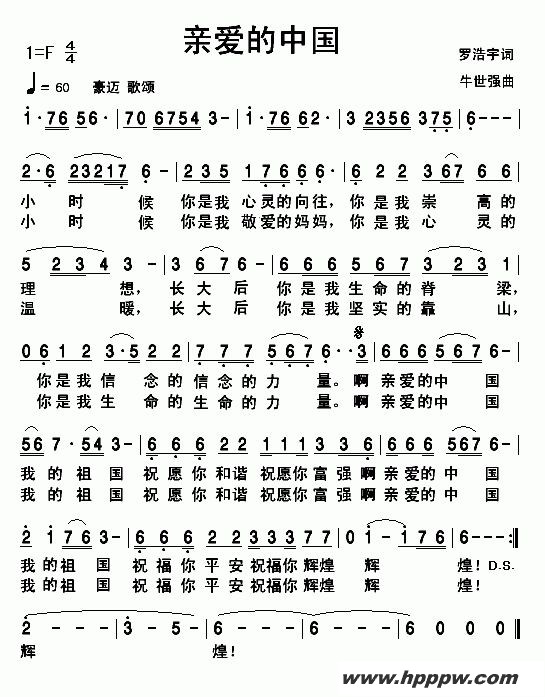 亲爱的中国
1=F 4/4
罗浩宇词
♩=60 豪迈 歌颂
牛世强曲
i·76 56· | 70 6754 3- | i·i76 62· | 3 2356 375 | 6--- |
2·6 23217 6- | 235 17666 | 6 2 2 3 67 6 6
小 时 候 你是我 心灵的向往, 你是我 崇 高的
小 时 候 你是我 敬爱的妈妈, 你是我 心 灵的
5 2 3 4 3- | 3 67 6- | 6 6 6 5 6 7 | 3 2 3 1
理 想, 长大后 你是我生命的脊 梁,
温 暖, 长大后 你是我坚实的靠 山,
0 6 1 2 3·5 2 2 | 7 7 7 5 67 | 6··3 | 666 4567 5-
你是我信 念的信念的力 量。啊 亲爱的中 国
你是我生 命的生命的力 量。啊 亲爱的中 国
56 7· 543- | 666 2 2 | 333 1 3 3 6 | 666 5 67 6-
我的祖国 祝愿你和谐 祝愿你富强啊 亲爱的中 国
我的祖国 祝愿你和谐 祝愿你富强啊 亲爱的中 国
2 i 7 6 3- | 6 6 6 2 2 333377 | 0i- i76 | 6--:||
我的祖 国 祝福你平安祝福你辉煌 辉 煌! D.S.
我的祖 国 祝福你平安祝福你辉煌 辉 煌!
2-i- | 2-3- | 6--- | 6--- | 6-00 ||
辉 煌!
www.hpppw.com